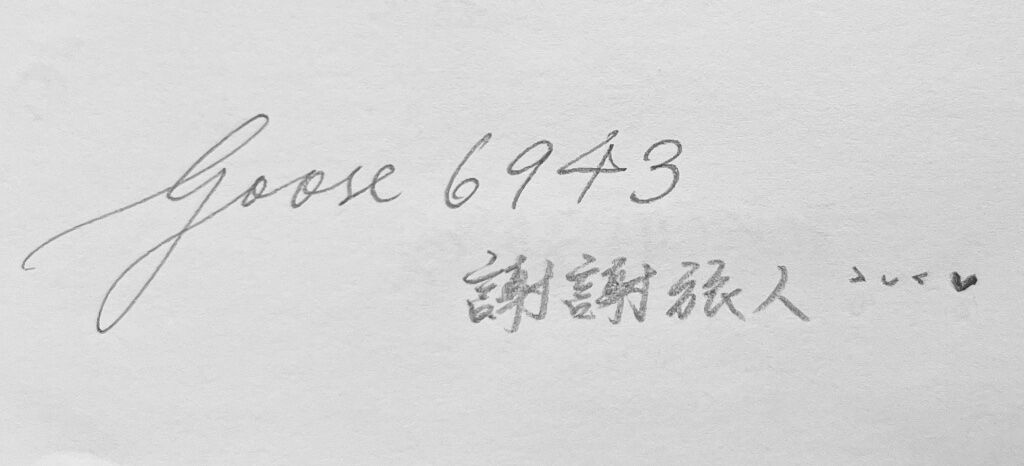 Goose 6943
謝謝旅人